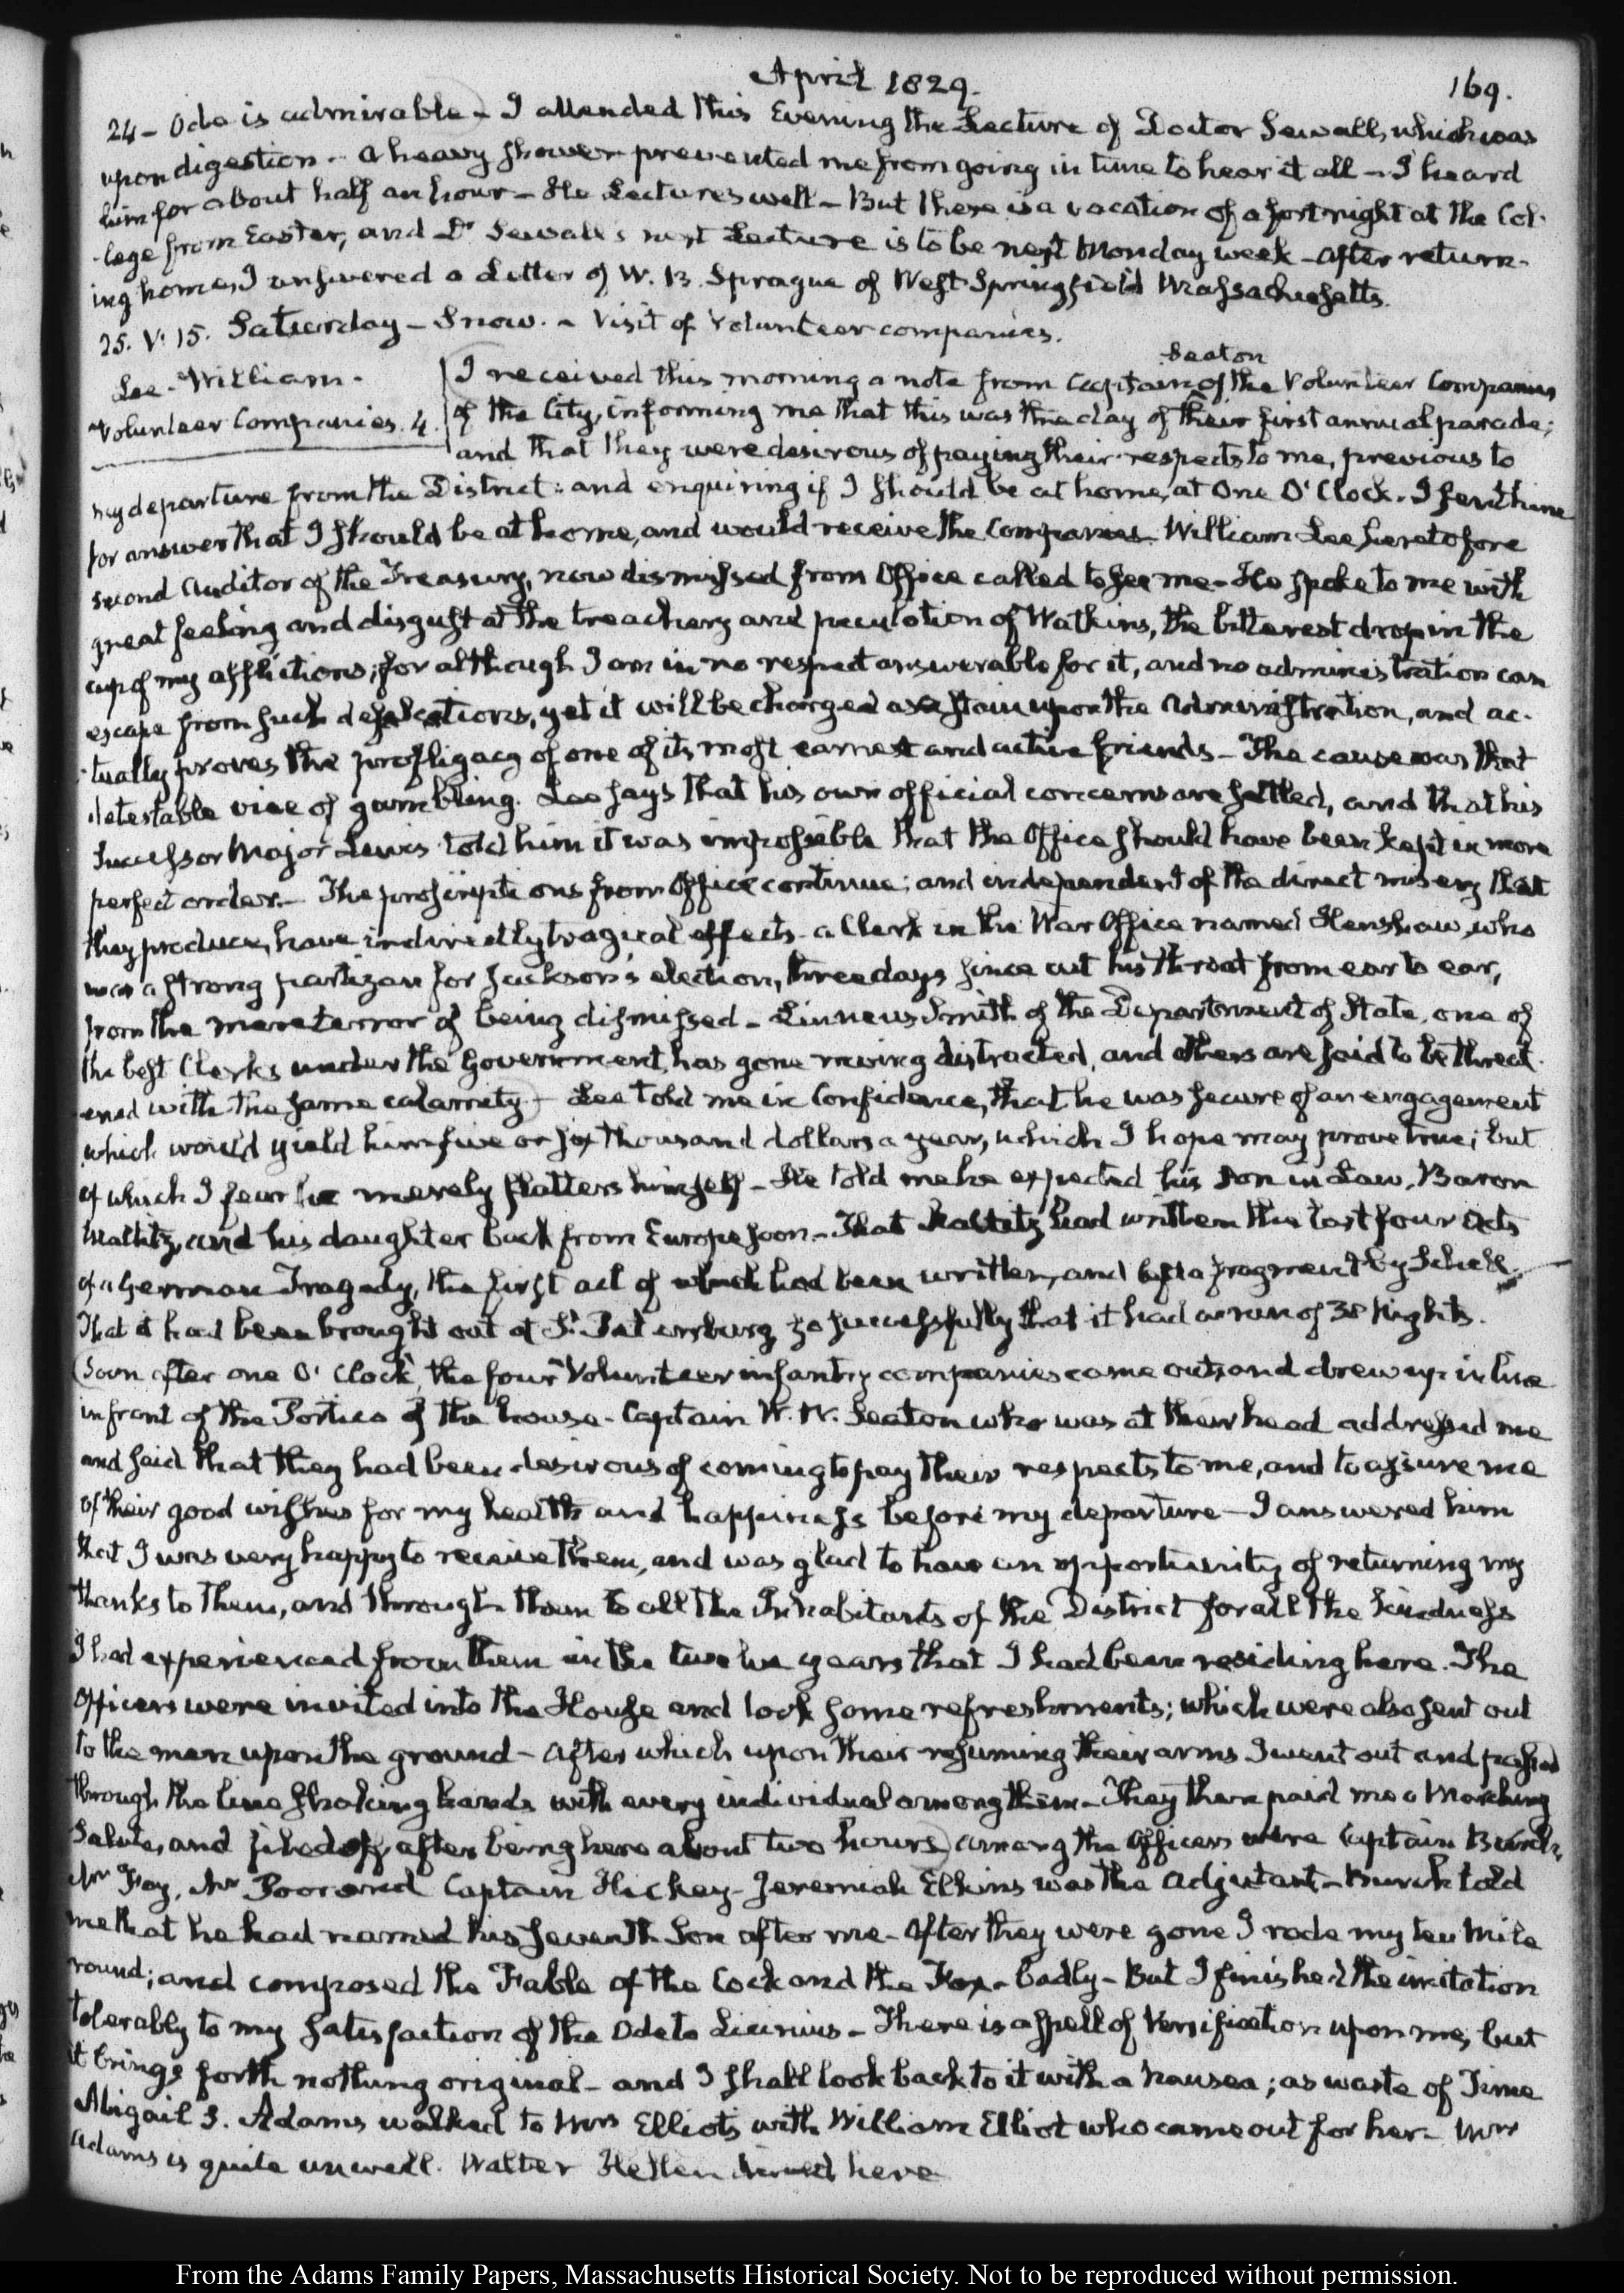 April 1829.
169.
24 – Ode is admirable – I attended this Evening the Lecture of Doctor Sewall, which was
upon digestion – a heavy shower prevented me from going in time to hear it all – I heard
him for about half an hour – He Lectures well – But there is a vacation of a fortnight at the Col-
-lege from Easter, and Dr Sewall's next Lecture is to be next Monday week – After return-
ing home, I answered a Letter of W. B. Sprague of West Springfield Massachusetts.
25. V: 15. Saturday – Snow. – Visit of Volunteer companies.
Lee – William.
Volunteer Companies. 4.
Seaton
I received this morning a note from Captain of the Volunteer Companies
of the City, informing me that this was the day of their first annual parade;
and that they were desirous of paying their respects to me, previous to
my departure from the District: and enquiring if I should be at home, at One O'Clock. I sent him
for answer that I should be at home, and would receive the Companies. William Lee heretofore
second Auditor of the Treasury, now dismissed from Office called to see me – He spoke to me with
great feeling and disgust at the treachery and peculation of Watkins, the bitterest drop in the
cup of my afflictions; for although I am in no respect answerable for it, and no administration can
escape from such defalcations, yet it will be charged as a stain upon the Administration, and ac-
-tually proves the profligacy of one of its most earnest and active friends – The cause was that
detestable vice of gambling. Lee says that his own official concerns are settled, and that his
Successor Major Lewis told him it was impossible that the Office should have been kept in more
perfect order. – The proscriptions from Office continue; and independent of the direct misery that
they produce, have indirectly tragical effects – a Clerk in the War Office named Henshaw, who
was a strong partizan for Jackson's election, three days since cut his throat from ear to ear,
from the mere terror of being dismissed – Linneus Smith of the Department of State, one of
the best Clerks under the Government, has gone raving distracted, and others are said to be threat-
ened with the same calamity – Lee told me in Confidence, that he was secure of an engagement
which would yield him five or six thousand dollars a year, which I hope may prove true; but
of which I fear he merely flatters himself – He told me he expected his Son in Law, Baron
Maltitz, and his daughter back from Europe soon – That Maltitz had written the last four Acts
of a German Tragedy, the first act of which had been written, and left a fragment by Schill
That it had been brought out at St. Petersburg so successfully that it had a run of 38 Nights.
(Soon after one O'Clock, the four Volunteer infantry companies came out, and drew up in line
in front of the Portico of the house – Captain W. W. Seaton who was at their head addressed me
and said that they had been desirous of coming to pay their respects to me, and to assure me
of their good wishes for my health and happiness before my departure – I answered him
that I was very happy to receive them, and was glad to have an opportunity of returning my
thanks to them, and through them to all the Inhabitants of the District for all the kindness
I had experienced from them in the twelve years that I had been residing here. The
Officers were invited into the House and took some refreshments; which were also sent out
to the men upon the ground – After which upon their resuming their arms I went out and passed
through the line shaking hands with every individual among them – They then paid me a Marching
Salute, and filed off, after being here about two hours) among the Officers were Captain Burch,
Mr Fay, Mr Poor and Captain Hickey – Jeremiah Elkins was the Adjutant – Burch told
me that he had named his seventh Son after me – After they were gone I rode my ten Mile
round; and composed the Fable of the Cock and the Fox – badly – But I finished the imitation
tolerably to my satisfaction of the Ode to Licinius – There is a spell of Versification upon me; but
it brings forth nothing original – and I shall look back to it with a nausea; as waste of Time
Abigail S. Adams walked to Mrs Elliot's with William Elliot who came out for her – Mrs
Adams is quite unwell. Walter Hellen dined here
From the Adams Family Papers, Massachusetts Historical Society. Not to be reproduced without permission.